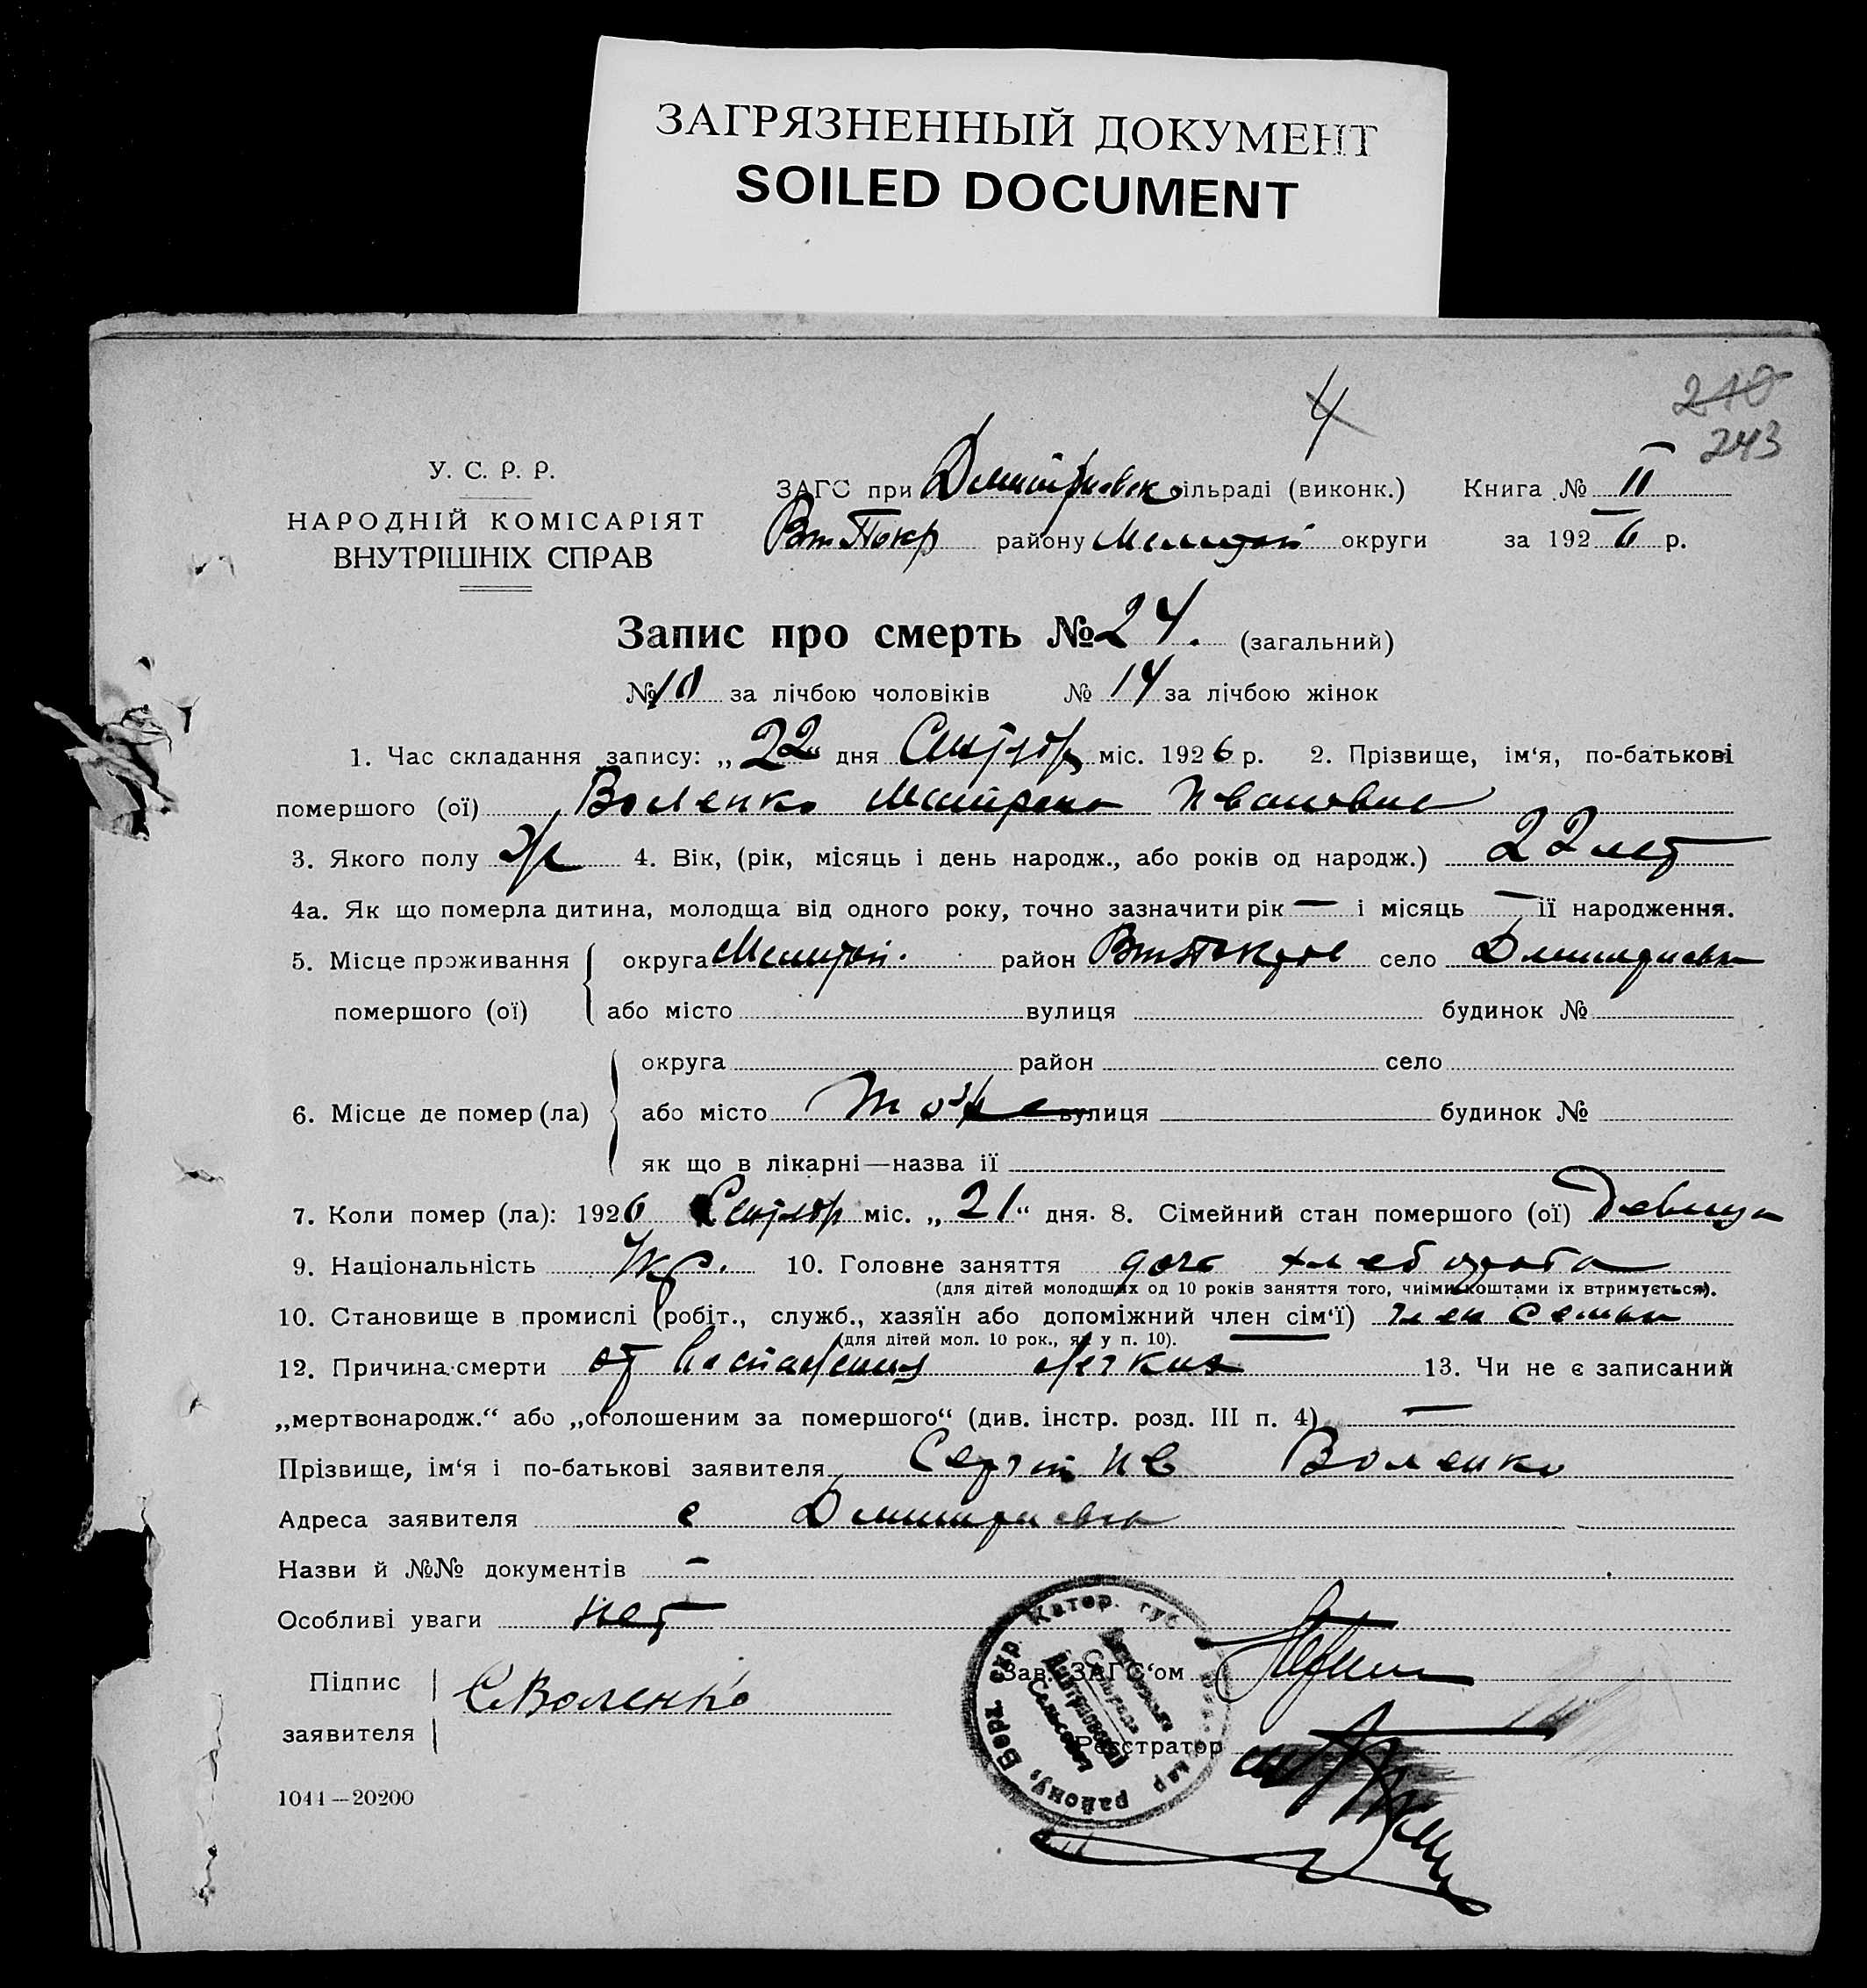 ЗАГРЯЗНЕННЫЙ ДОКУМЕНТ
SOILED DOCUMENT
4
210
243
У. С. Р. Р.
НАРОДНІЙ КОМІСАРІЯТ
ВНУТРІШНІХ СПРАВ
ЗАГС при Дмитровск сільраді (виконк.) Книга № II
ВтПокр району Мелитоп округи за 1926 р.
Запис про смерть № 24. (загальний)
№ 10 за лічбою чоловіків № 14 за лічбою жінок
1. Час складання запису: „22“ дня Сентябр міс. 1926 р. 2. Прізвище, ім‘я, по-батькові
помершого (ої) Воленко Матрена Ивановна
3. Якого полу ж 4. Вік, (рік, місяць і день народж., або років од народж.) 22 лет
4а. Як що померла дитина, молодща від одного року, точно зазначити рік — і місяць — її народження.
5. Місце проживання помершого (ої) округа Мелитоп. район село Дмитриевка
або місто вулиця будинок №
6. Місце де помер (ла) округа район село
або місто тоже вулиця будинок №
як що в лікарні—назва її
7. Коли помер (ла): 1926 Сентябр міс. „21“ дня. 8. Сімейний стан помершого (ої) девица
9. Національність Укр. 10. Головне заняття доч хлебороба
(для дітей молодщих од 10 років заняття того, чиїми коштами їх втримується).
10. Становище в промислі (робіт., служб., хазяїн або допоміжний член сім‘ї) член семьи
(для дітей мол. 10 рок., як у п. 10). —
12. Причина смерти от воспаления легких 13. Чи не є записаний
„мертвонародж.“ або „оголошеним за помершого“ (див. інстр. розд. III п. 4) —
Прізвище, ім‘я і по-батькові заявителя Сергей Ив Воленко
Адреса заявителя с Дмитриевка
Назви й №№ документів -
Особливі уваги нет
Підпис заявителя С Воленко
Зав. ЗАГС‘ом
Реєстратор
Катер. губ. району, Берд. окр.
Сельсовет
1044—20200